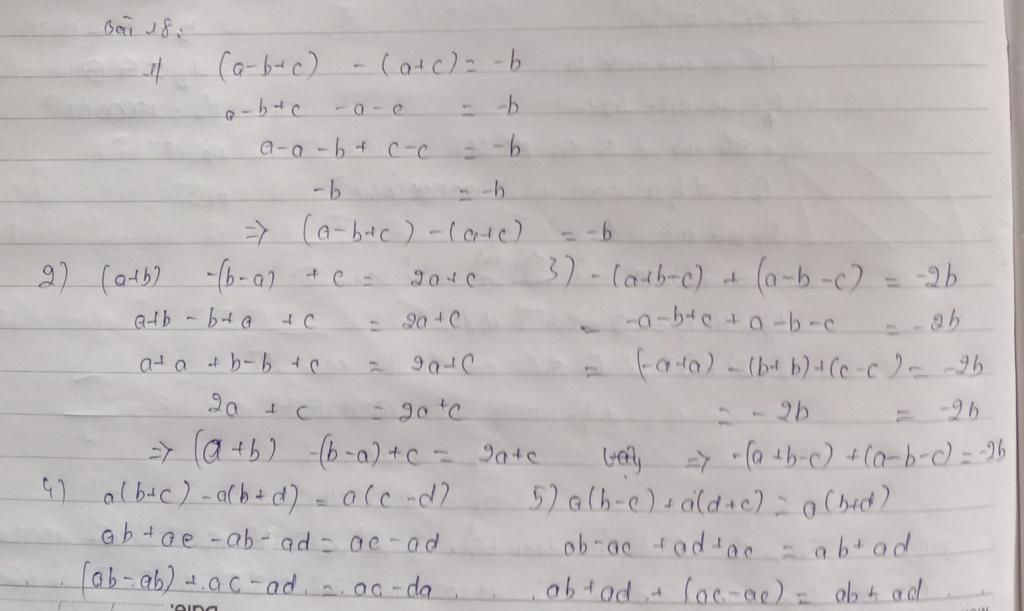 Bài 18:
1) (a-b+c) - (a+c) = -b
a-b+c -a-c = -b
a-a-b+c-c = -b
-b = -b
=> (a-b+c) -(a+c) = -b
2) (a+b) -(b-a) + c = 2a+c
a+b-b+a +c = 2a+c
a+a + b-b +c = 2a+c
2a + c = 2a+c
=> (a+b) -(b-a)+c = 2a+c
3) -(a+b-c) + (a-b-c) = -2b
= -a-b+c+a-b-c = -2b
= (-a+a) -(b+b)+(c-c) = -2b
= -2b = -2b
Vậy => -(a+b-c) +(a-b-c) = -2b
4) a(b+c) -a(b+d) = a(c-d)
ab+ac -ab-ad = ac-ad
(ab-ab) + ac-ad = ac-da
5) a(b-c) + a(d+c) = a(b+d)
ab-ac +ad+ac = ab+ad
ab+ad + (ac-ac) = ab+ad